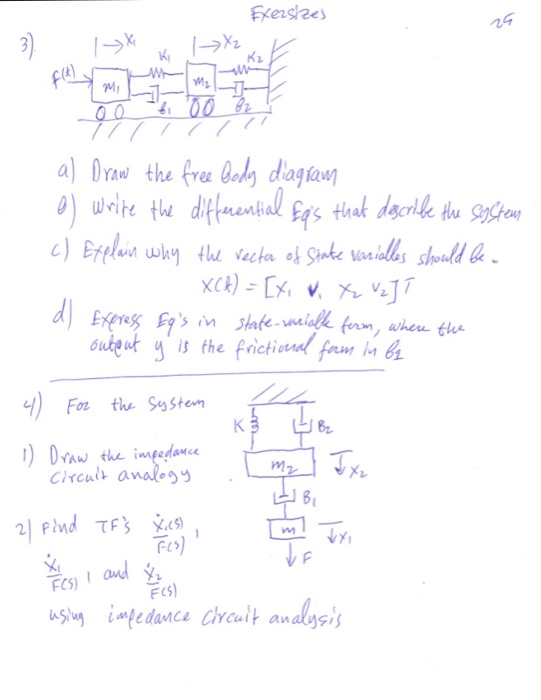 Exersizes
29
3)
x1
x2
K1
K2
f(t)
m1
m2
B1
B2
a) Draw the free body diagram
b) Write the differential Eq's that describe the system
c) Explain why the vector of state variables should be.
x(t) = [x1 v1 x2 v2]T
d) Express Eq's in state-variable form, where the
output y is the frictional form in B2
4) For the System
K
B2
1) Draw the impedance
circuit analogy
m2
x2
B1
2) Find TF's Ẋ1(s)/F(s),
m
x1
F
Ẋ1/F(s), and Ẋ2/F(s)
using impedance circuit analysis